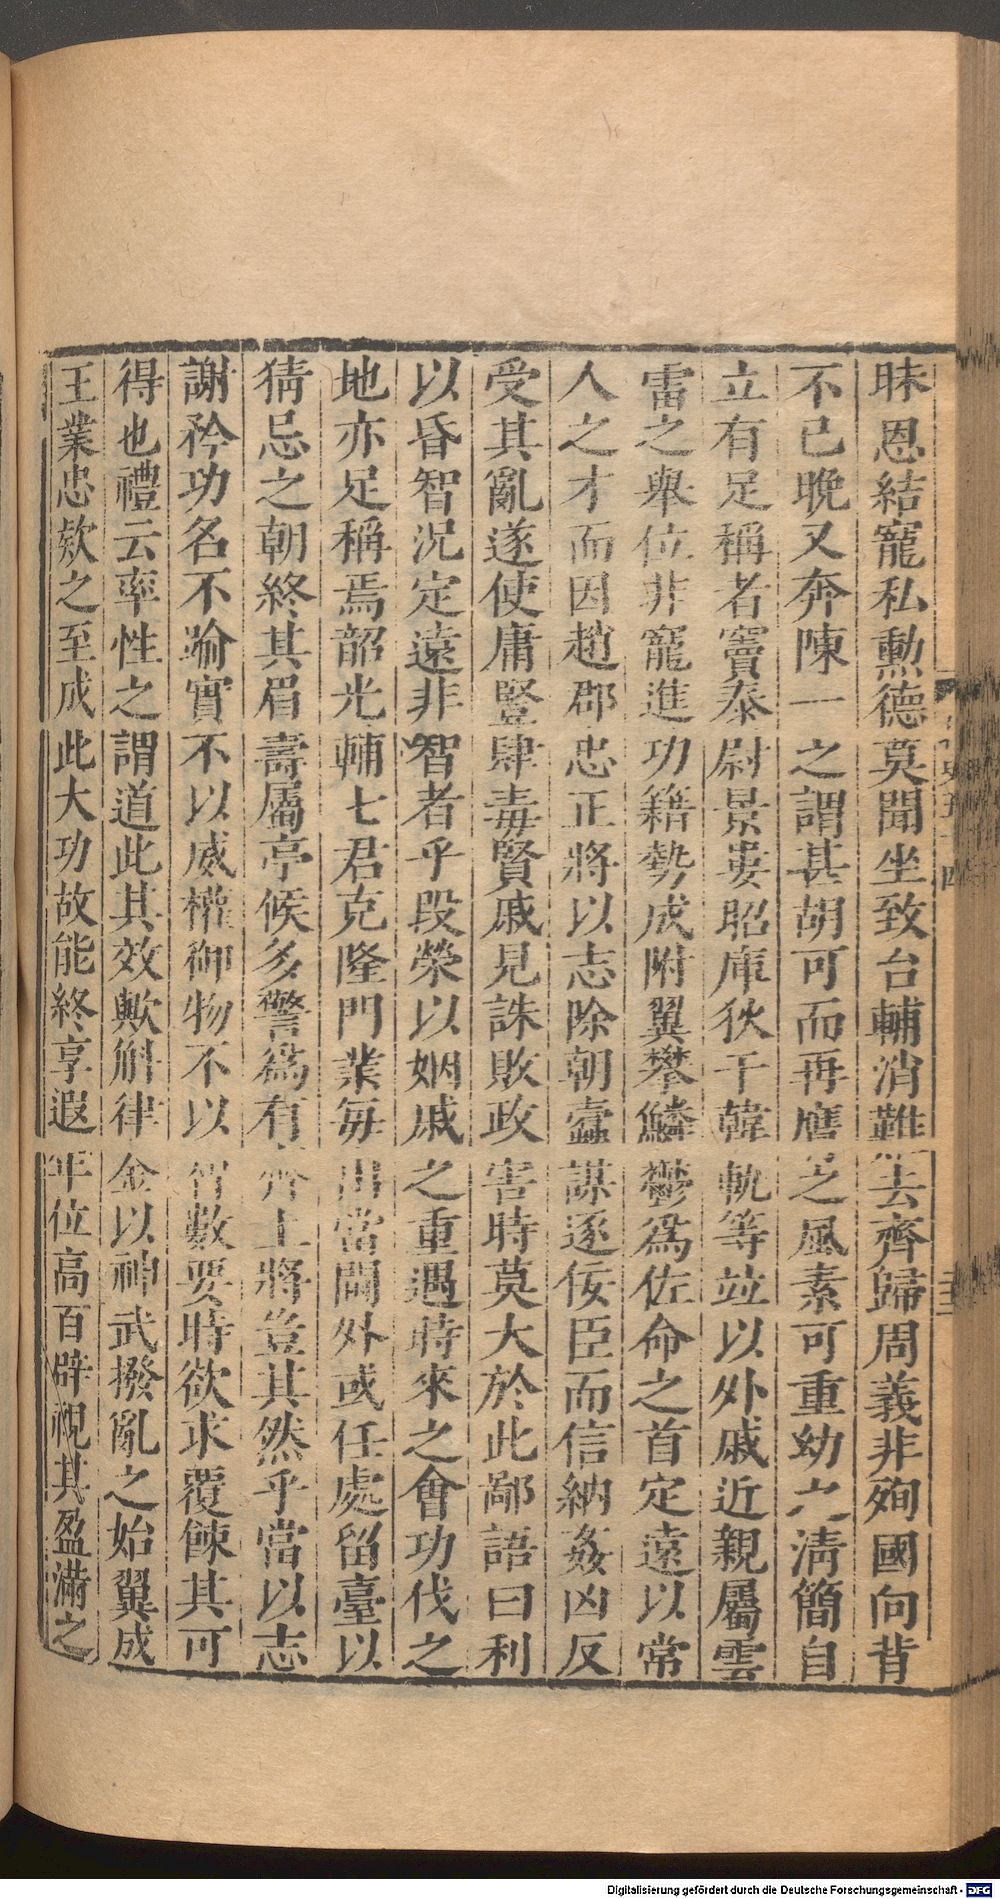 昧恩結寵私勳德莫聞坐致台輔消難去齊歸周義非殉國向背
不已晚又奔陳一之謂甚胡可而再膺之風素可重幼六清簡自
立有足稱者竇泰尉景婁昭庫狄干韓軌等並以外戚近親屬雲
雷之舉位非寵進功籍勢成附翼攀鱗鬱爲佐命之首定遠以常
人之才而因趙郡忠正將以志除朝蠹謀逐佞臣而信納姦凶反
受其亂遂使庸豎肆毒賢戚見誅敗政害時莫大於此鄙語曰利
以昏智況定遠非智者乎段榮以姻戚之重遇時來之會功伐之
地亦足稱焉韶光輔七君克隆門業每出當閫外或任處留臺以
猜忌之朝終其眉壽屬亭候多警爲有齊上將豈其然乎當以志
謝矜功名不踰實不以威權御物不以智數要時欲求覆餗其可
得也禮云率性之謂道此其效歟斛律金以神武撥亂之始翼成
王業忠欵之至成此大功故能終享遐年位高百辟視其盈滿之
Digitalisierung gefördert durch die Deutsche Forschungsgemeinschaft - DFG